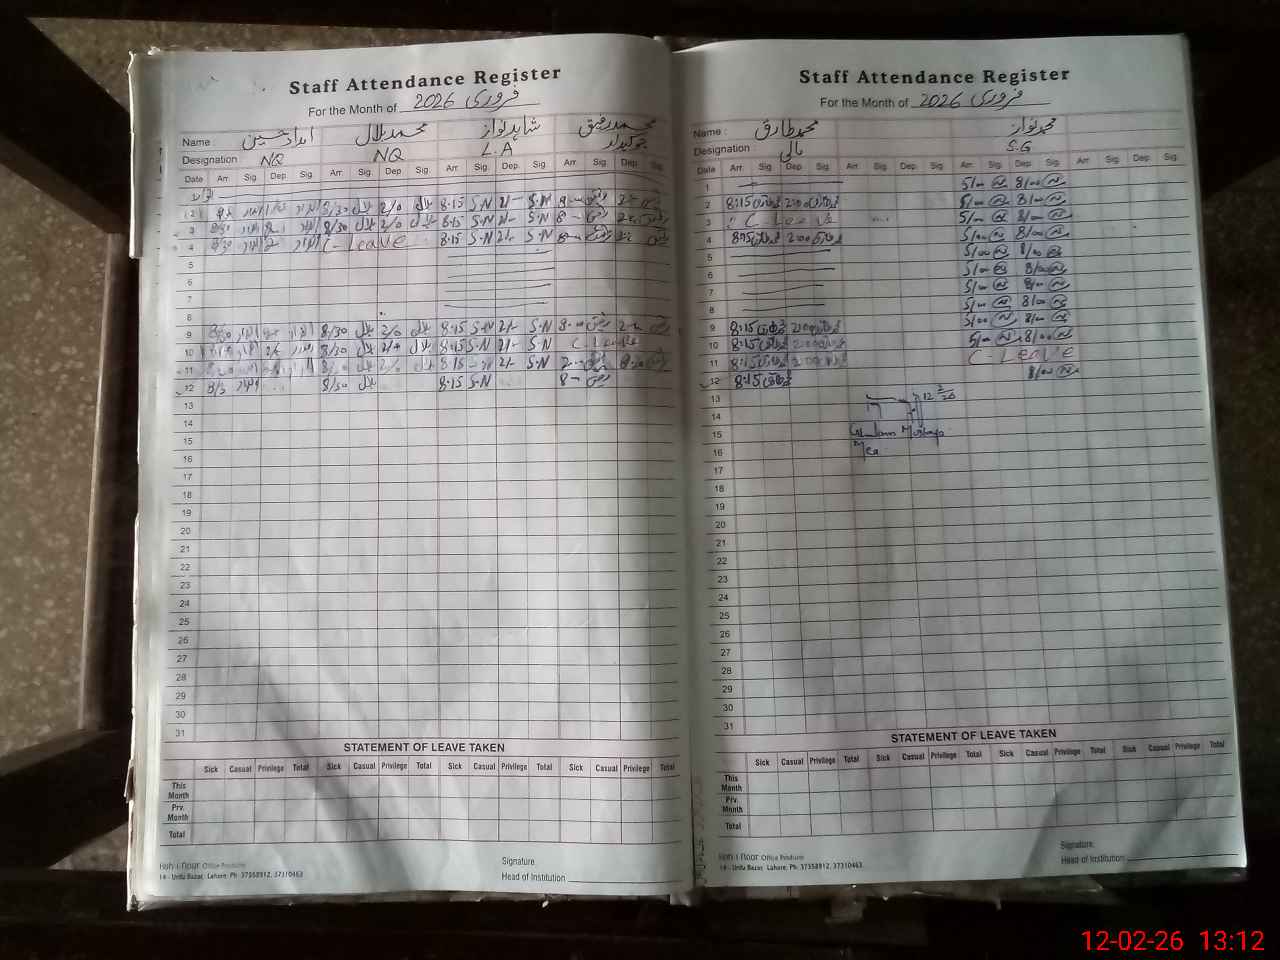 Staff Attendance Register
For the Month of فروری 2026
Name : امداد حسین محمد بلال شاہد نواز محمد رفیق
Designation NQ NQ L.A چوکیدار
Date Arr. Sig. Dep. Sig. Arr. Sig. Dep. Sig. Arr. Sig. Dep. Sig. Arr. Sig. Dep. Sig.
2 8/30 بلال 2/0 بلال 8.15 S.N 2/- S.N 8-
3 8/30 8/30 بلال 2/0 بلال 8.15 S.N 2/- S.N 8-
4 8/30 C-Leave 8.15 S.N 2/- S.N 8-
5
6
7
8
9 8/30 8/30 بلال 2/0 بلال 8.15 S.N 2/- S.N 8-
10 8/30 بلال 2/0 بلال 8.15 S.N 2/- S.N C-Leave
11 بلال 2/0 بلال 8.15 2/- S.N
12 8/30 بلال 8.15 S.N 8-
13
14
15
16
17
18
19
20
21
22
23
24
25
26
27
28
29
30
31
STATEMENT OF LEAVE TAKEN
Sick Casual Privilege Total Sick Casual Privilege Total Sick Casual Privilege Total Sick Casual Privilege Total
This Month
Prv. Month
Total
Koh-i-Noor Office Products
14 - Urdu Bazar, Lahore. Ph: 37358912, 37310463
Signature
Head of Institution
Staff Attendance Register
For the Month of فروری 2026
Name : محمد طارق محمد نواز
Designation مالی S.G
Date Arr. Sig. Dep. Sig. Arr. Sig. Dep. Sig. Arr. Sig. Dep. Sig. Arr. Sig. Dep. Sig.
1 5/00 8/00
2 8:15 طارق 2:00 طارق 5/00 8/00
3 C-Leave 5/00 8/00
4 8:15 طارق 2:00 طارق 5/00 8/00
5 5/00 8/00
6 5/00 8/00
7 5/00 8/00
8 5/00 8/00
9 8:15 طارق 2:00 طارق 5/00 8/00
10 8:15 طارق 2:00 طارق 5/00 8/00
11 8:15 طارق 2:00 طارق C-Leave
12 8:15 طارق 8/00
13
14
15
16
17
18
19
20
21
22
23
24
25
26
27
28
29
30
31
STATEMENT OF LEAVE TAKEN
Sick Casual Privilege Total Sick Casual Privilege Total Sick Casual Privilege Total Sick Casual Privilege Total
This Month
Prv. Month
Total
Koh-i-Noor Office Products
14 - Urdu Bazar, Lahore. Ph: 37358912, 37310463
Signature:
Head of Institution
12-02-26 13:12